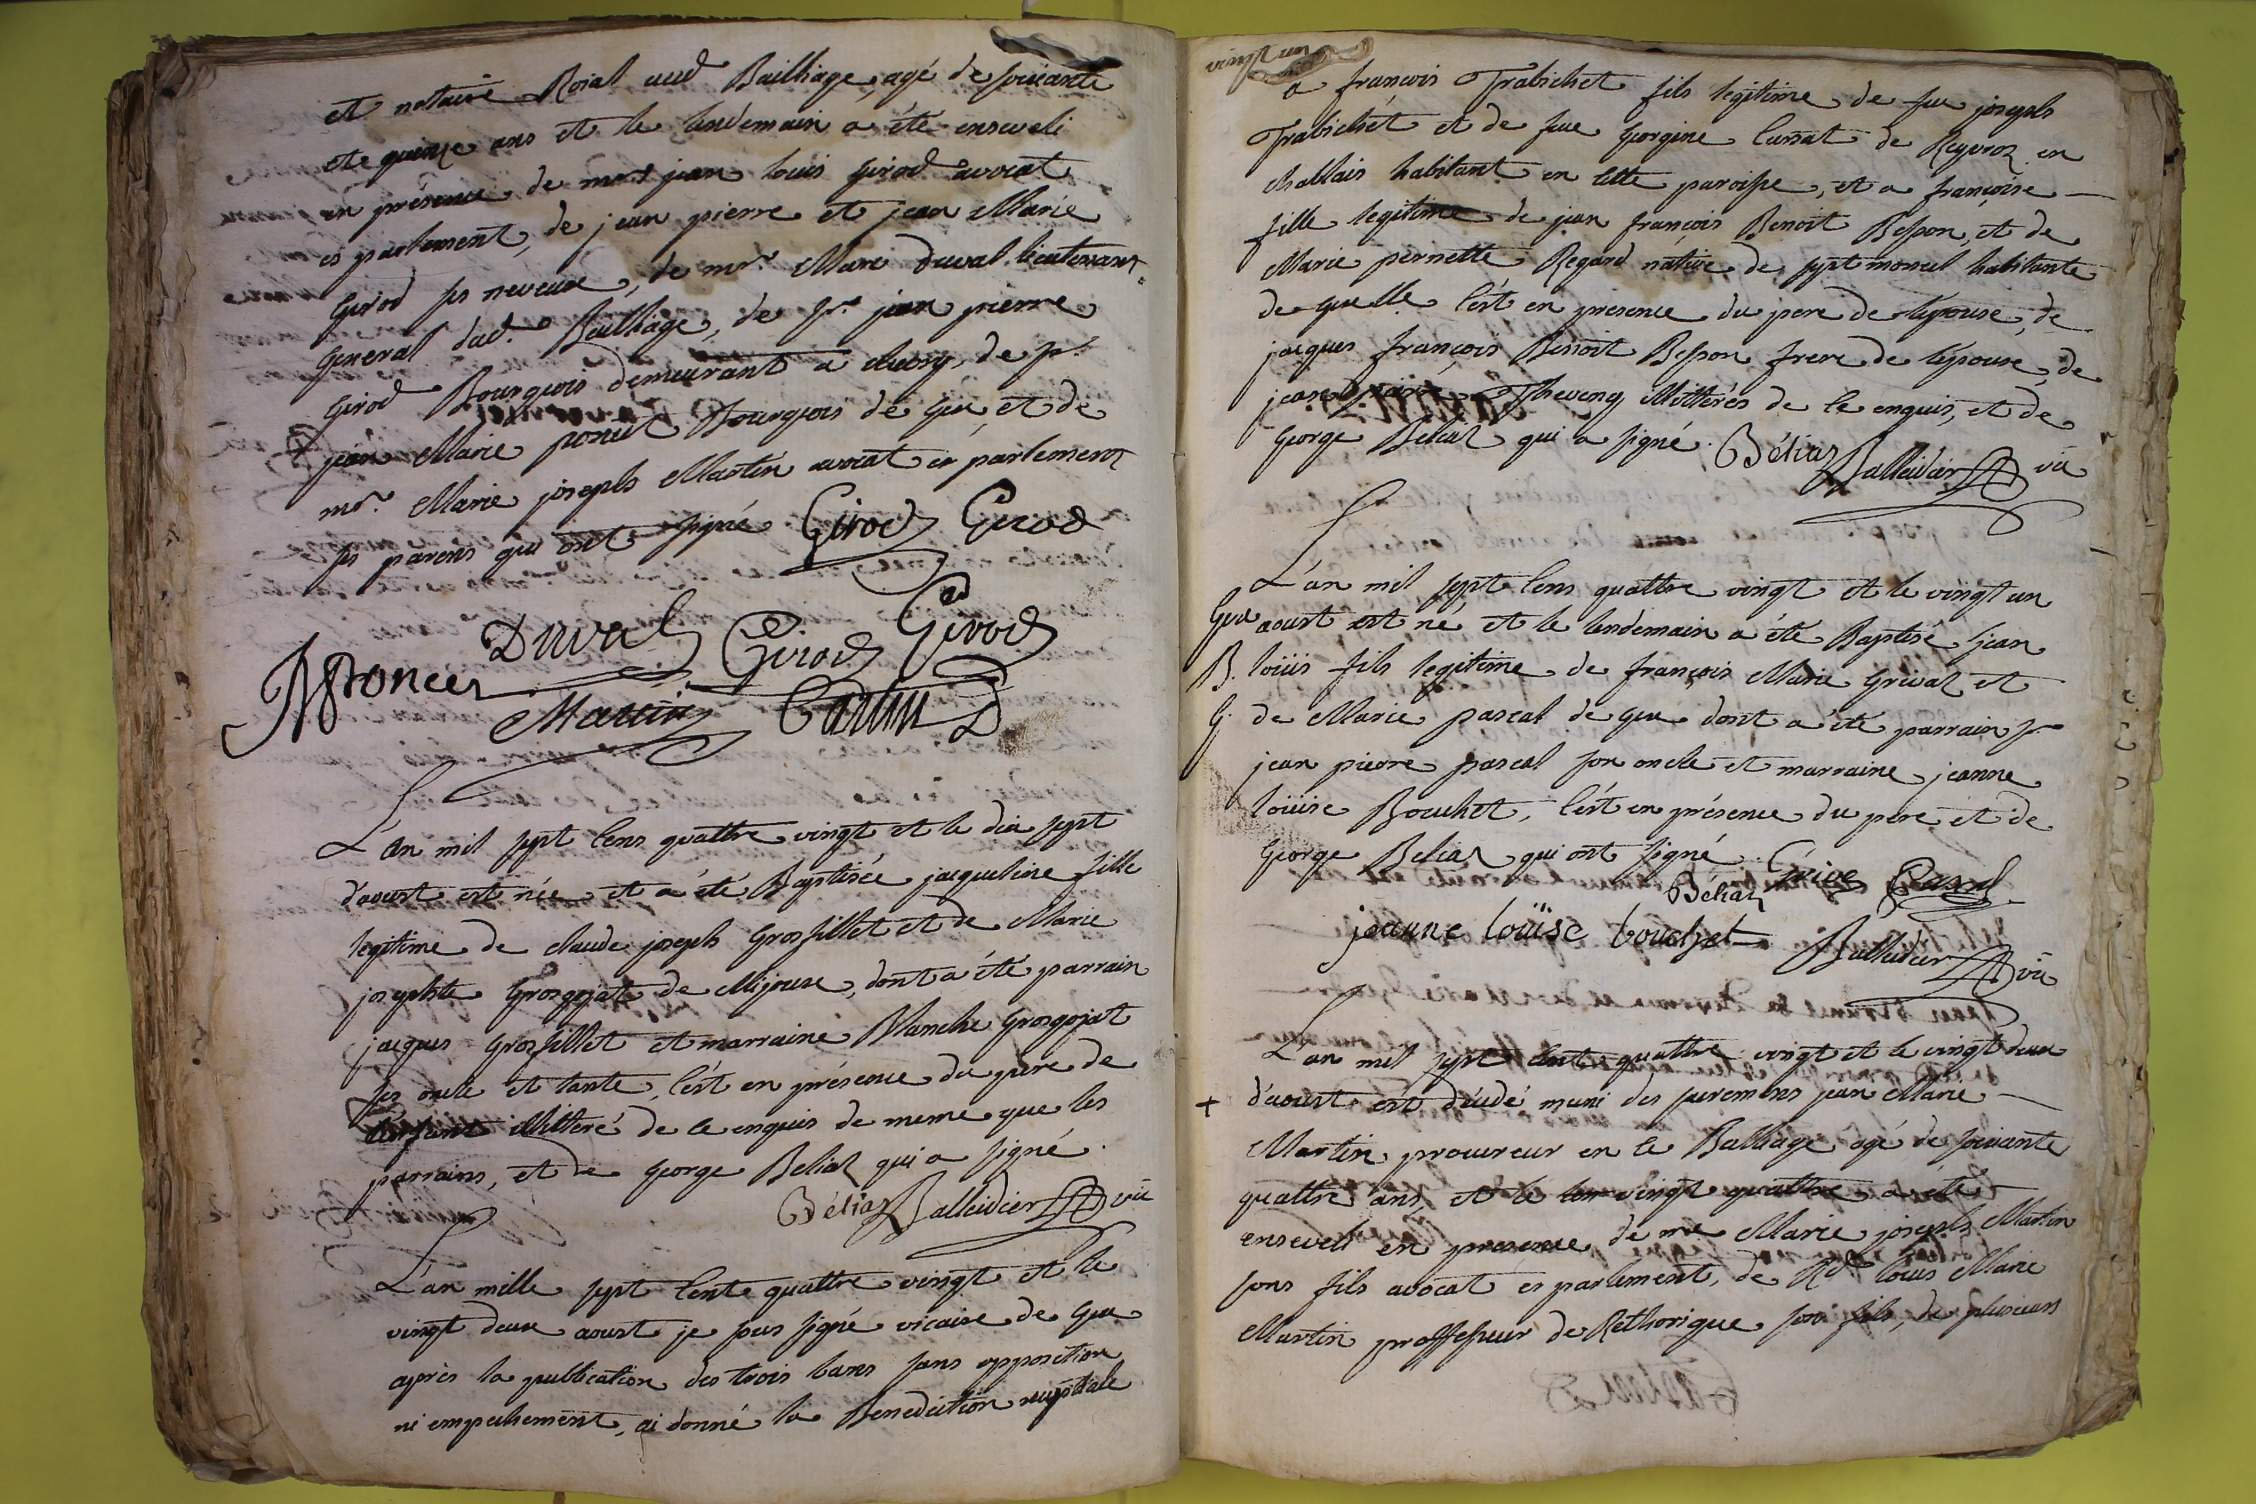 et notaire Roial aud Bailliage, agé de soixante
et quinze ans et le lendemain a été enseveli
en présence de mre jean louis Girod avocat
es parlement, de jean pierre et jean Marie
Girod ses neveux, de mr. Marc duval lieutenant
General dud. Bailliage, de Sr. jean pierre
Girod Bourgeois demeurant a chevry, de sr.
jean Marie poncet Bourgeois de Gex, et de
mr. Marie joseph Martin avocat en parlement
ses parens qui ont signé Girod Girod
Duval Girod Girod
Poncet
Martin Castin
L'an mil sept Cens quattre vingt et le dix sept
d'aoust est née et a été Baptisée jacqueline fille
legitime de claude joseph Grosfillet et de Marie
josephte Grosgojat de Mijoux, dont a été parrain
jacques Grosfillet et marraine Blanche Grosgojat
ses oncle et tante, C'est en présence du père de
L'enfant illitteré de ce enquis de meme que les
parrains, et de George Beliaz qui a signé.
Béliaz Balleidier vic
L'an mille sept Cent quattre vingt et le
vingt deux aoust je sous signé vicaire de Gex
après la publication des trois bans sans opposition
ni empechement, ai donné la Benediction nuptiale
vingt un
a françois Trabichet fils legitime de feu joseph
Trabichet et de feue Gorgine Cursat de Reyvroz en
chablais habitant en Cette paroisse, et a françoise
fille legitime de jean françois Benoit Besson, et de
Marie pernette Regard native de septmoncel habitante
de Gex elle C'est en presence du pere de l'épouse, de
jacques françois Benoit Besson frere de l'épouse, de
jean Thevenq illitterés de ce enquis, et de
George Beliaz qui a signé. Béliaz
Balleidier vic
L'an mil sept Cens quattre vingt et le vingt un
Gex aoust est né et le lendemain a été Baptisé jean
B. loüis fils legitime de françois Marie Grivaz et
G. de Marie pascal de Gex dont a été parrain sr
jean pierre pascal son oncle et marraine jeanne
loüise Bouchet, C'est en présence du pere et de
George Beliaz qui ont signé. Grivaz Pascal
Béliaz
jeanne loüise bouchet Balleidier vic
L'an mil sept Cent quattre vingt et le vingt deux
+ d'aoust est décédé muni des sacremens jean Marie
Martin procureur en ce Bailliage agé de soixante
quattre ans, et le vingt quattre a été
enseveli en presence de me Marie joseph Martin
sons fils avocat es parlement, de Rd louis Marie
Martin proffesseur de Rethorique son fils, de plusieurs